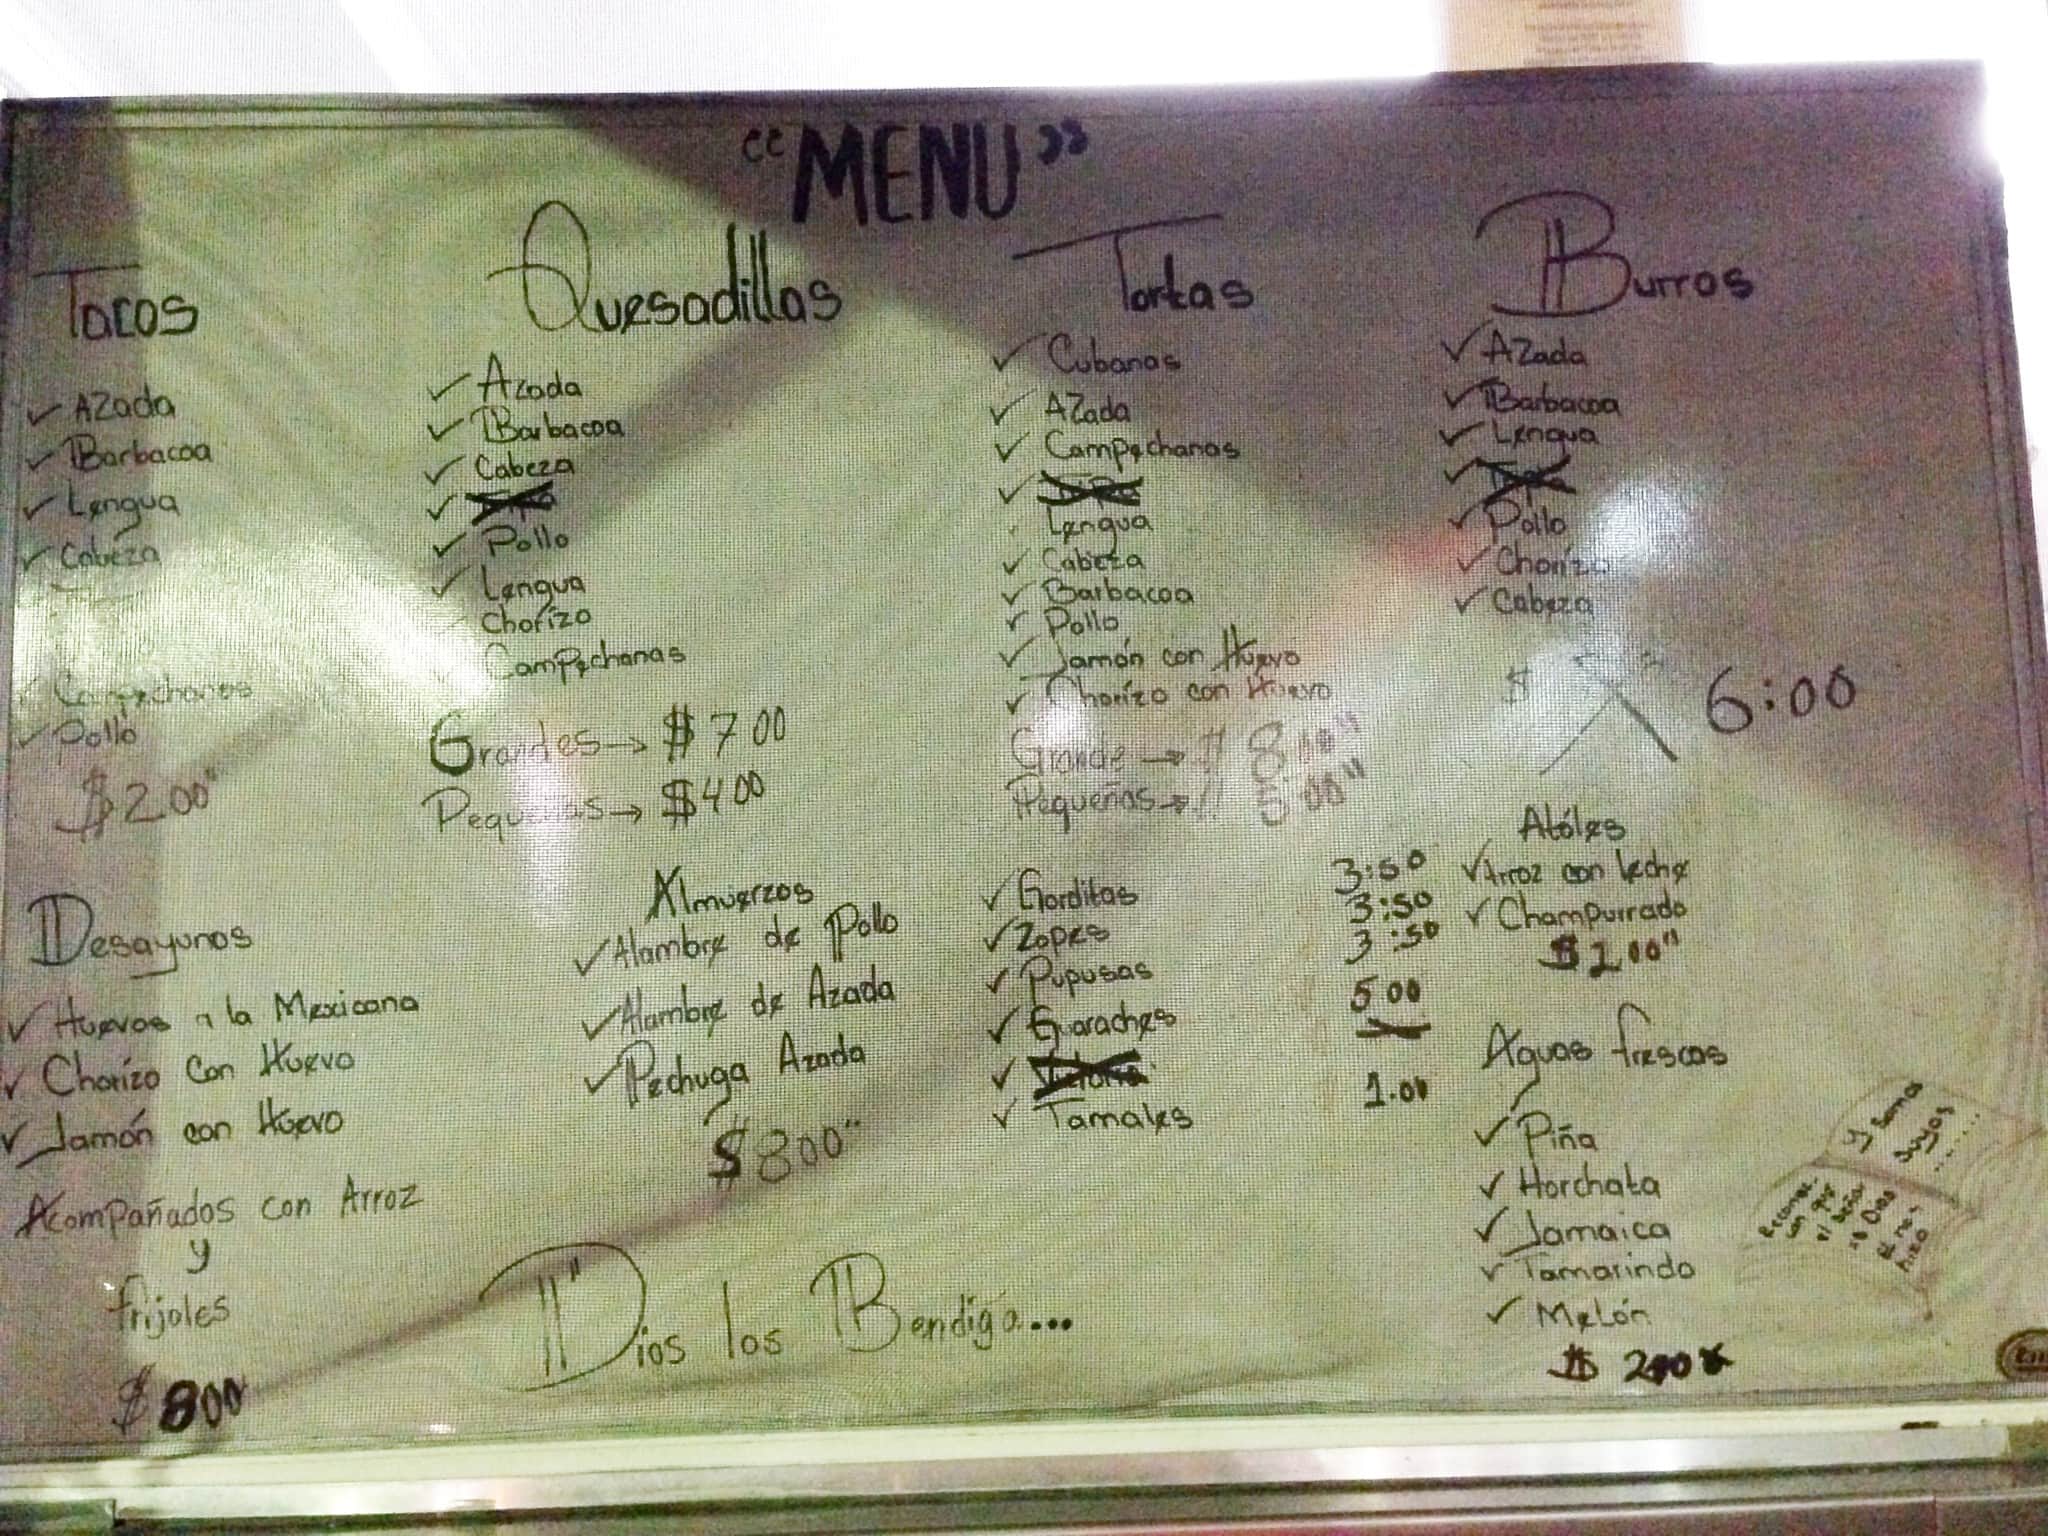 "MENU"
Tacos
AZada
Barbacoa
Lengua
Cabeza
Campechanas
Pollo
$2.00"
Quesadillas
Azada
Barbacoa
Cabeza
Pollo
Lengua
Chorizo
Campechanas
Grandes → $700
Pequeñas → $400
Tortas
Cubanas
AZada
Campechanas
Lengua
Cabeza
Barbacoa
Pollo
Jamón con Huevo
Chorizo con Huevo
Grande → $8.00"
Pequeñas → 5.00"
Burros
AZada
Barbacoa
Lengua
Pollo
Chorizo
Cabeza
$ 6:00
Desayunos
Huevos a la Mexicana
Chorizo Con Huevo
Jamón con Huevo
Acompañados con Arroz
y
frijoles
$800
Almuerzos
Alambre de Pollo
Alambre de Azada
Pechuga Azada
$800"
Gorditas 3:50
Zopes 3:50
Pupusas 3:50
Guaraches 500
Tamales 1.00
Atóles
Arroz con leche
Champurrado
$200"
Aguas frescas
Piña
Horchata
Jamaica
Tamarindo
Melón
$ 200
"Dios los Bendiga...
que
el señor
es Dios
él nos
hizo
y Somos
Suyos